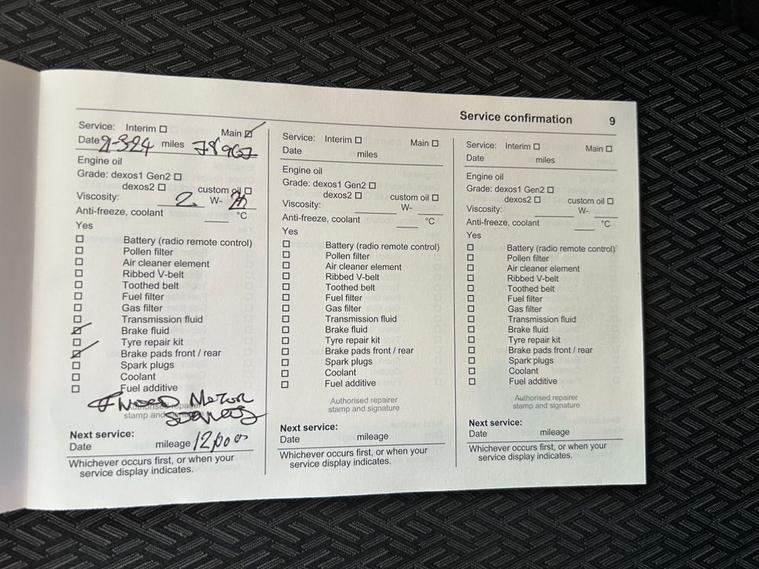 Service confirmation 9
Service: Interim ☐ Main ☑
Date miles
Engine oil
Grade: dexos1 Gen2 ☐
dexos2 ☐ custom oil ☐
Viscosity: W-
Anti-freeze, coolant °C
Yes
☐ Battery (radio remote control)
☐ Pollen filter
☐ Air cleaner element
☐ Ribbed V-belt
☐ Toothed belt
☐ Fuel filter
☐ Gas filter
☐ Transmission fluid
☑ Brake fluid
☐ Tyre repair kit
☑ Brake pads front / rear
☐ Spark plugs
☐ Coolant
☐ Fuel additive
Authorised repairer
stamp and
Next service:
Date mileage
Whichever occurs first, or when your
service display indicates.
Service: Interim ☐ Main ☐
Date miles
Engine oil
Grade: dexos1 Gen2 ☐
dexos2 ☐ custom oil ☐
Viscosity: W-
Anti-freeze, coolant °C
Yes
☐ Battery (radio remote control)
☐ Pollen filter
☐ Air cleaner element
☐ Ribbed V-belt
☐ Toothed belt
☐ Fuel filter
☐ Gas filter
☐ Transmission fluid
☐ Brake fluid
☐ Tyre repair kit
☐ Brake pads front / rear
☐ Spark plugs
☐ Coolant
☐ Fuel additive
Authorised repairer
stamp and signature
Next service:
Date mileage
Whichever occurs first, or when your
service display indicates.
Service: Interim ☐ Main ☐
Date miles
Engine oil
Grade: dexos1 Gen2 ☐
dexos2 ☐ custom oil ☐
Viscosity: W-
Anti-freeze, coolant °C
Yes
☐ Battery (radio remote control)
☐ Pollen filter
☐ Air cleaner element
☐ Ribbed V-belt
☐ Toothed belt
☐ Fuel filter
☐ Gas filter
☐ Transmission fluid
☐ Brake fluid
☐ Tyre repair kit
☐ Brake pads front / rear
☐ Spark plugs
☐ Coolant
☐ Fuel additive
Authorised repairer
stamp and signature
Next service:
Date mileage
Whichever occurs first, or when your
service display indicates.